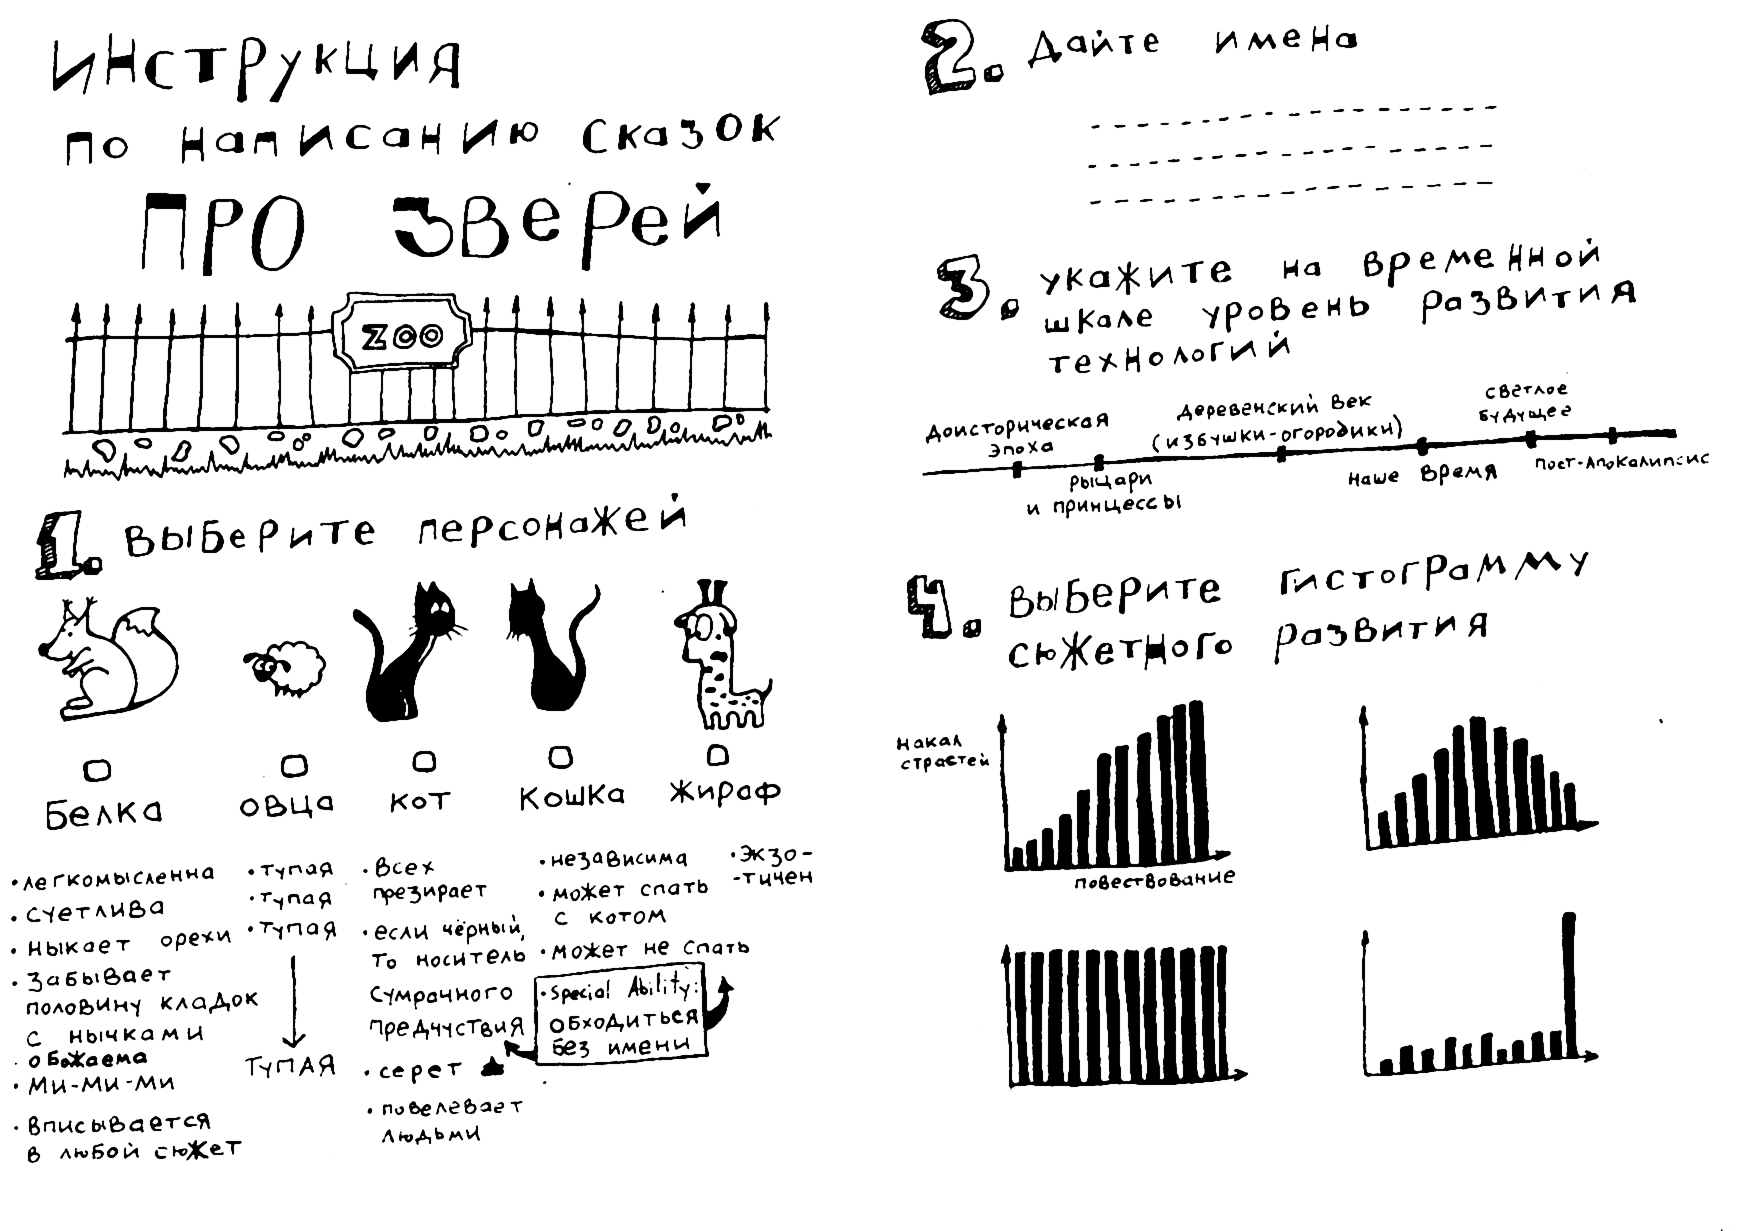 Инструкция
по написанию сказок
ПРО Зверей
ZOO
1. Выберите персонажей
Белка
овца
кот
Кошка
Жираф
• легкомысленна
• суетлива
• ныкает орехи
• Забывает
половину кладок
с нычками
• обожаема
• ми-ми-ми
• вписывается
в любой сюжет
• тупая
• тупая
• тупая
ТУПАЯ
• Всех
презирает
• если чёрный,
то носитель
сумрачного
предчуствия
• серет
• повелевает
людьми
• независима
• может спать
с котом
• может не спать
• Special Ability:
обходиться
без имени
• Экзо-
-тичен
2. Дайте имена
3. укажите на временной
шкале уровень развития
технологий
Доисторическая
эпоха
Рыцари
и принцессы
Деревенский век
(избушки-огородики)
Наше время
светлое
будущее
пост-апокалипсис
4. Выберите гистограмму
сюжетного развития
накал
страстей
повествование